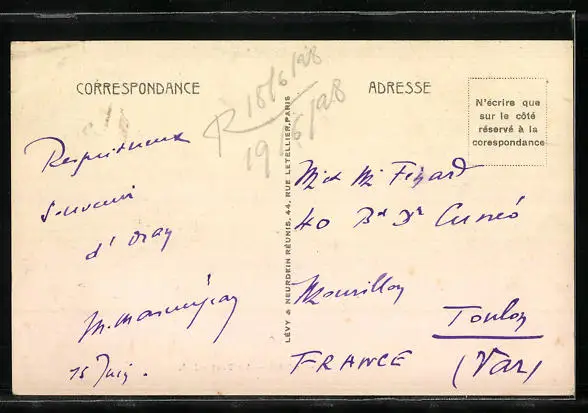 CORRESPONDANCE
Respectueux
Souvenir
d'Oran
15 Juin.
R 18/6/28
19/6/28
LÉVY & NEURDEIN RÉUNIS, 44, RUE LETELLIER, PARIS
ADRESSE
N'écrire que
sur le côté
réservé à la
corespondance
M et Me
40 Bd Dr Cunéo
Mourillon
Toulon
FRANCE (Var)